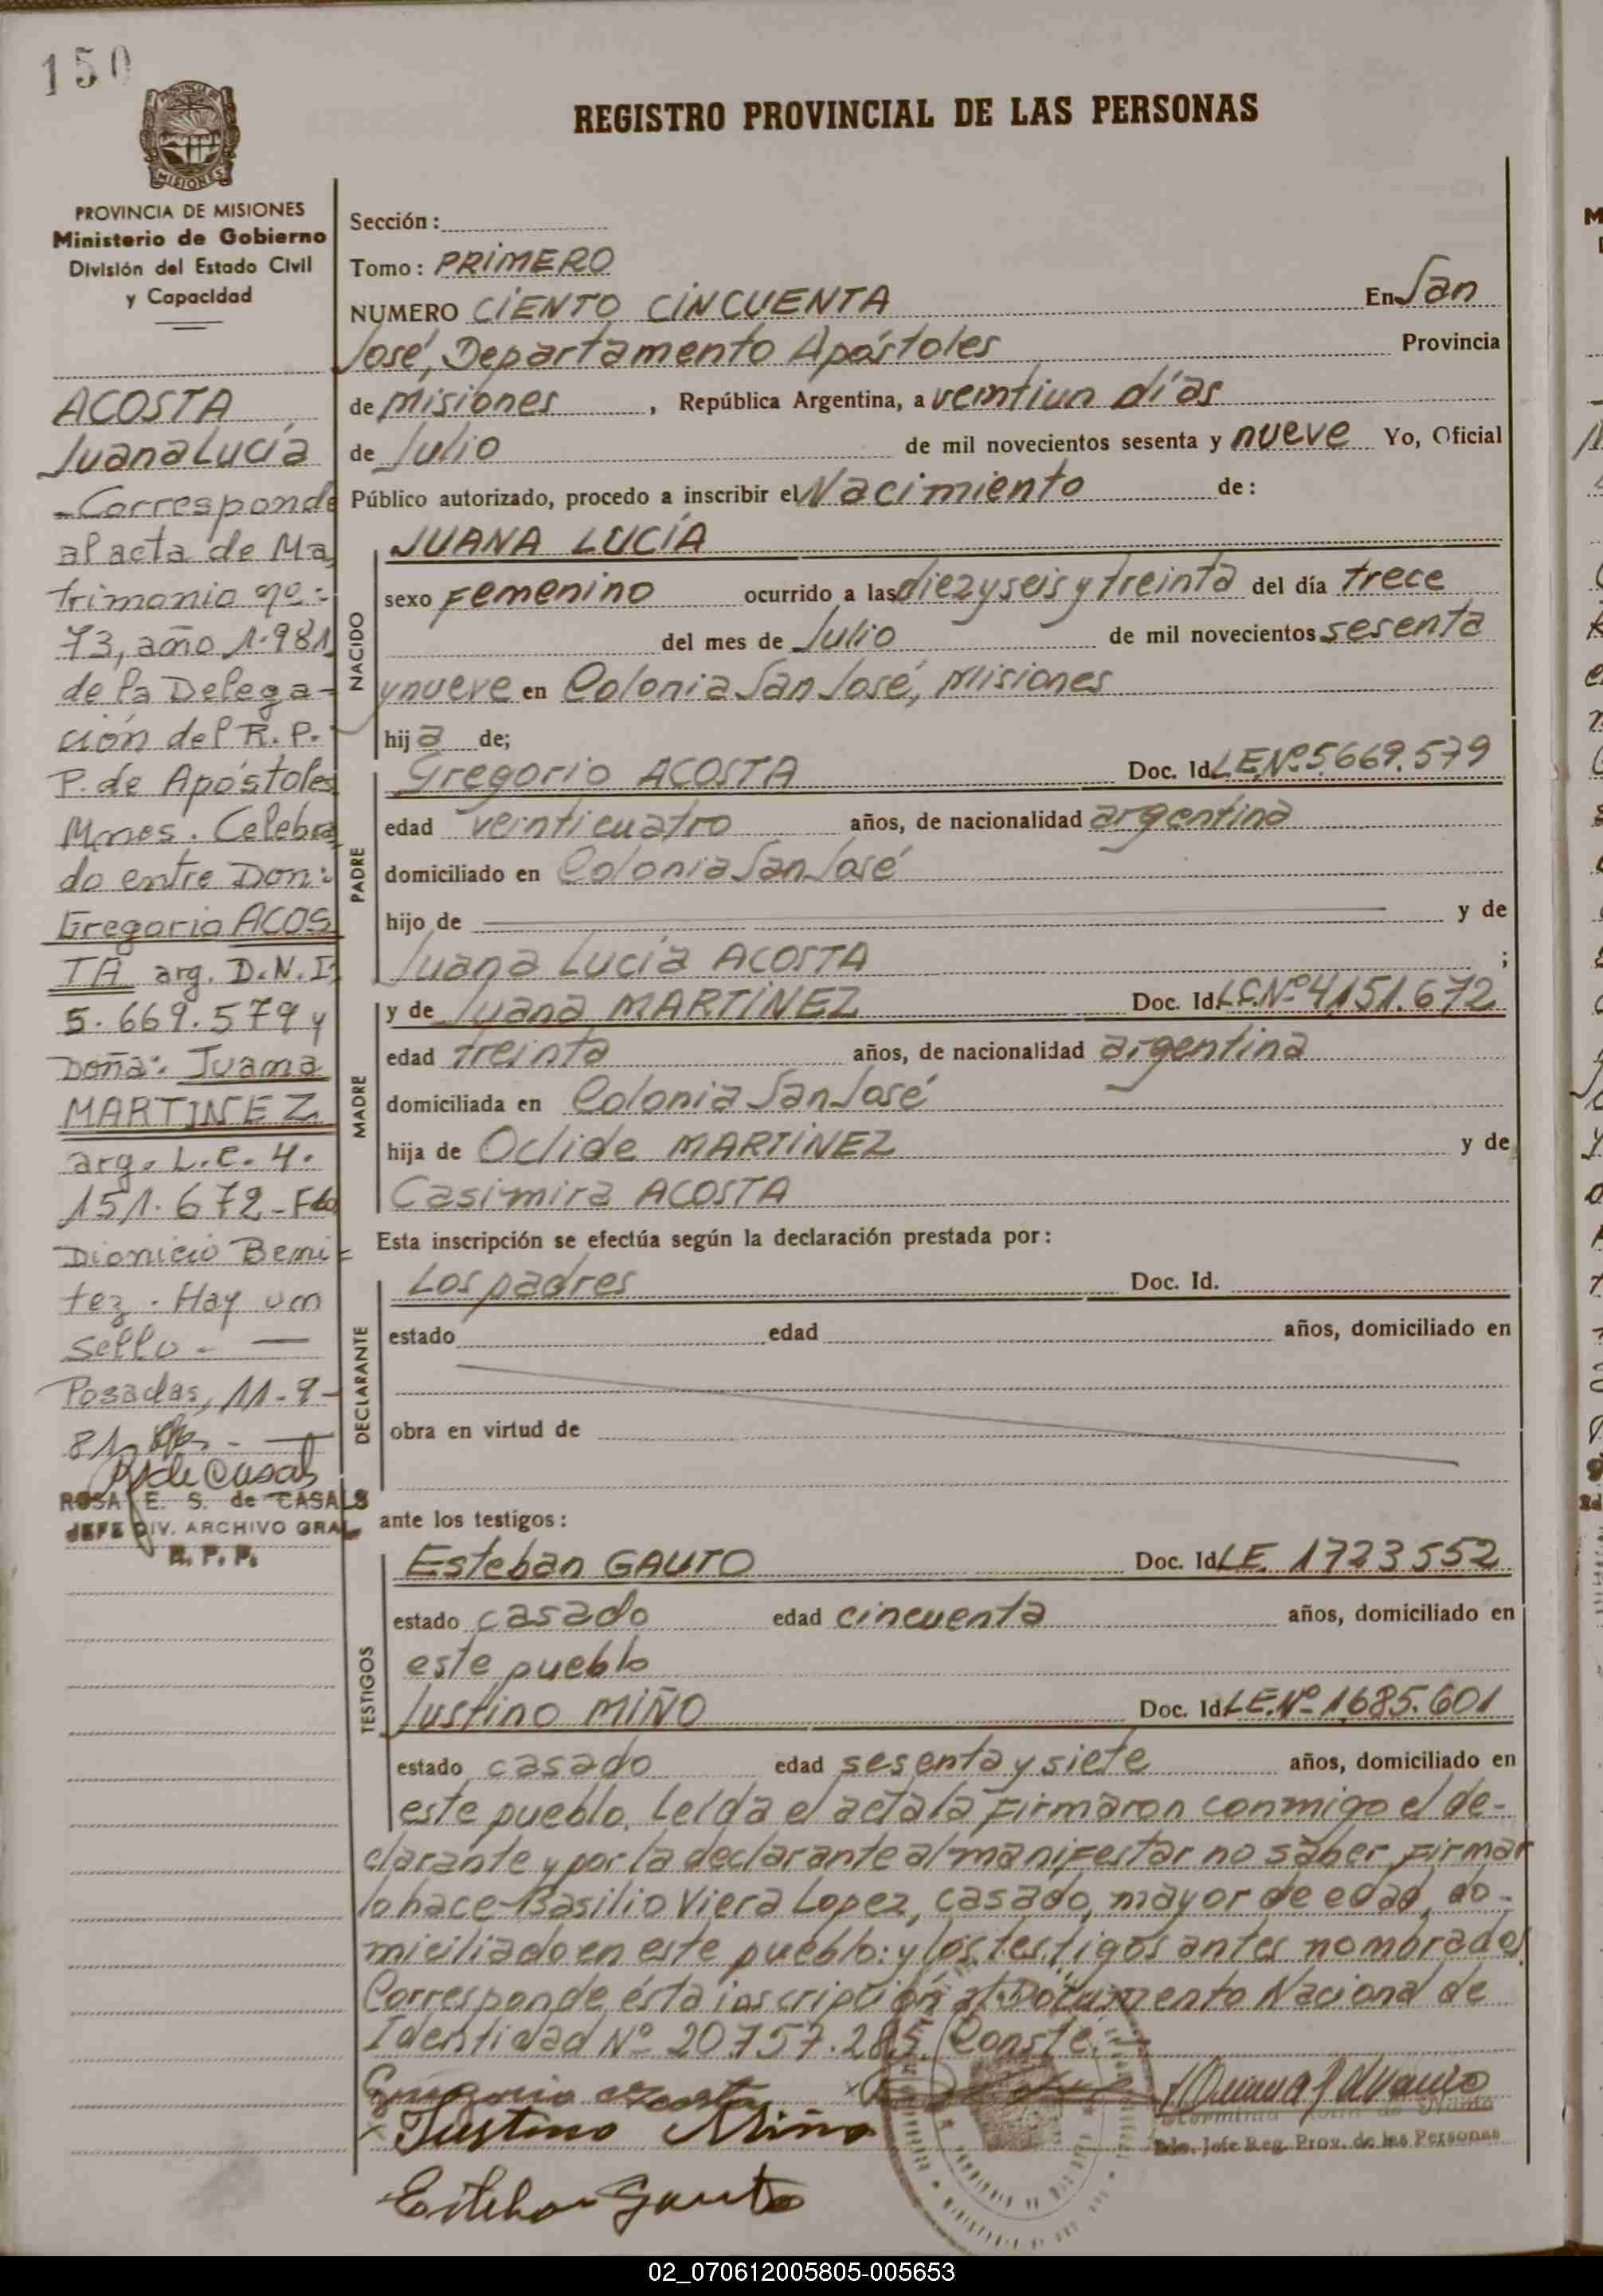 150
REGISTRO PROVINCIAL DE LAS PERSONAS
PROVINCIA DE
MISIONES
PROVINCIA DE MISIONES
Ministerio de Gobierno
División del Estado Civil
y Capacidad
ACOSTA
Juana Lucía
-Corresponde
al acta de Ma
trimonio nº:
73, año 1.981
de la Delega-
ción del R.P.
P. de Apóstoles
Mnes. Celebra
do entre Don:
Gregorio ACOS
TA arg. D.N.I.
5.669.579 y
Doña: Juana
MARTINEZ
arg. L.C. 4.
151.672 - Fdo
Dionicio Beni
tez. Hay un
sello. -
Posadas, 11-9-
81
ROSA E. S. de CASALS
JEFE DIV. ARCHIVO GRAL.
R. P. P.
Sección:
Tomo: PRIMERO
NUMERO CIENTO CINCUENTA En San
José, Departamento Apóstoles Provincia
de Misiones, República Argentina, a veintiun días
de Julio de mil novecientos sesenta y nueve Yo, Oficial
Público autorizado, procedo a inscribir el Nacimiento de:
NACIDO
JUANA LUCÍA
sexo Femenino ocurrido a las diez y seis y treinta del día trece
del mes de Julio de mil novecientos sesenta
y nueve en Colonia San José, Misiones
hija de;
PADRE
Gregorio ACOSTA Doc. Id. L.E.Nº 5.669.579
edad veinticuatro años, de nacionalidad argentina
domiciliado en Colonia San José
hijo de y de
Juana Lucía ACOSTA ;
MADRE
y de Juana MARTÍNEZ Doc. Id. L.C.Nº 4.151.672
edad treinta años, de nacionalidad argentina
domiciliada en Colonia San José
hija de Oclide MARTÍNEZ y de
Casimira ACOSTA
Esta inscripción se efectúa según la declaración prestada por:
DECLARANTE
Los padres Doc. Id.
estado edad años, domiciliado en
obra en virtud de
ante los testigos:
TESTIGOS
Esteban GAUTO Doc. Id. L.E. 1723552
estado casado edad cincuenta años, domiciliado en
este pueblo
Justino MIÑO Doc. Id. L.E.Nº 1.685.601
estado casado edad sesenta y siete años, domiciliado en
este pueblo. Leída el acta la Firmaron conmigo el de-
clarante y por la declarante al manifestar no saber Firmar
lo hace Basilio Viera Lopez, casado, mayor de edad, do-
miciliado en este pueblo: y los testigos antes nombrados.
Corresponde ésta inscripción al Documento Nacional de
Identidad Nº 20.757.285. Conste.
Gregorio Acosta
Justino Miño
Esteban Gauto
Jefe Reg. Prov. de las Personas
02_070612005805-005653